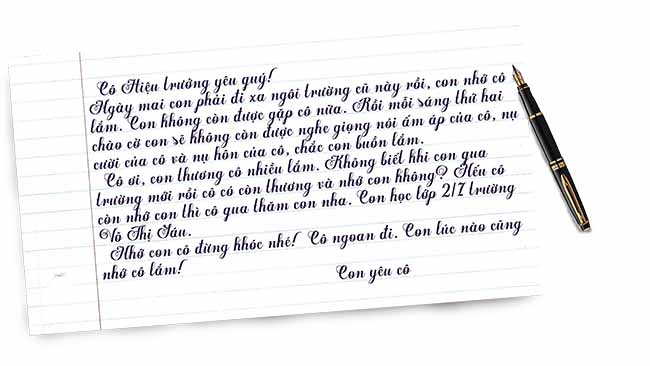 Cô Hiệu trưởng yêu quý!
Ngày mai con phải đi xa ngôi trường cũ này rồi, con nhớ cô
lắm. Con không còn được gặp cô nữa. Rồi mỗi sáng thứ hai
chào cờ con sẽ không còn được nghe giọng nói ấm áp của cô, nụ
cười của cô và nụ hôn của cô, chắc con buồn lắm.
Cô ơi, con thương cô nhiều lắm. Không biết khi con qua
trường mới rồi cô có còn thương và nhớ con không? Nếu cô
còn nhớ con thì cô qua thăm con nha. Con học lớp 2/7 trường
Võ Thị Sáu.
Nhớ con cô đừng khóc nhé! Cô ngoan đi. Con lúc nào cũng
nhớ cô lắm!
Con yêu cô